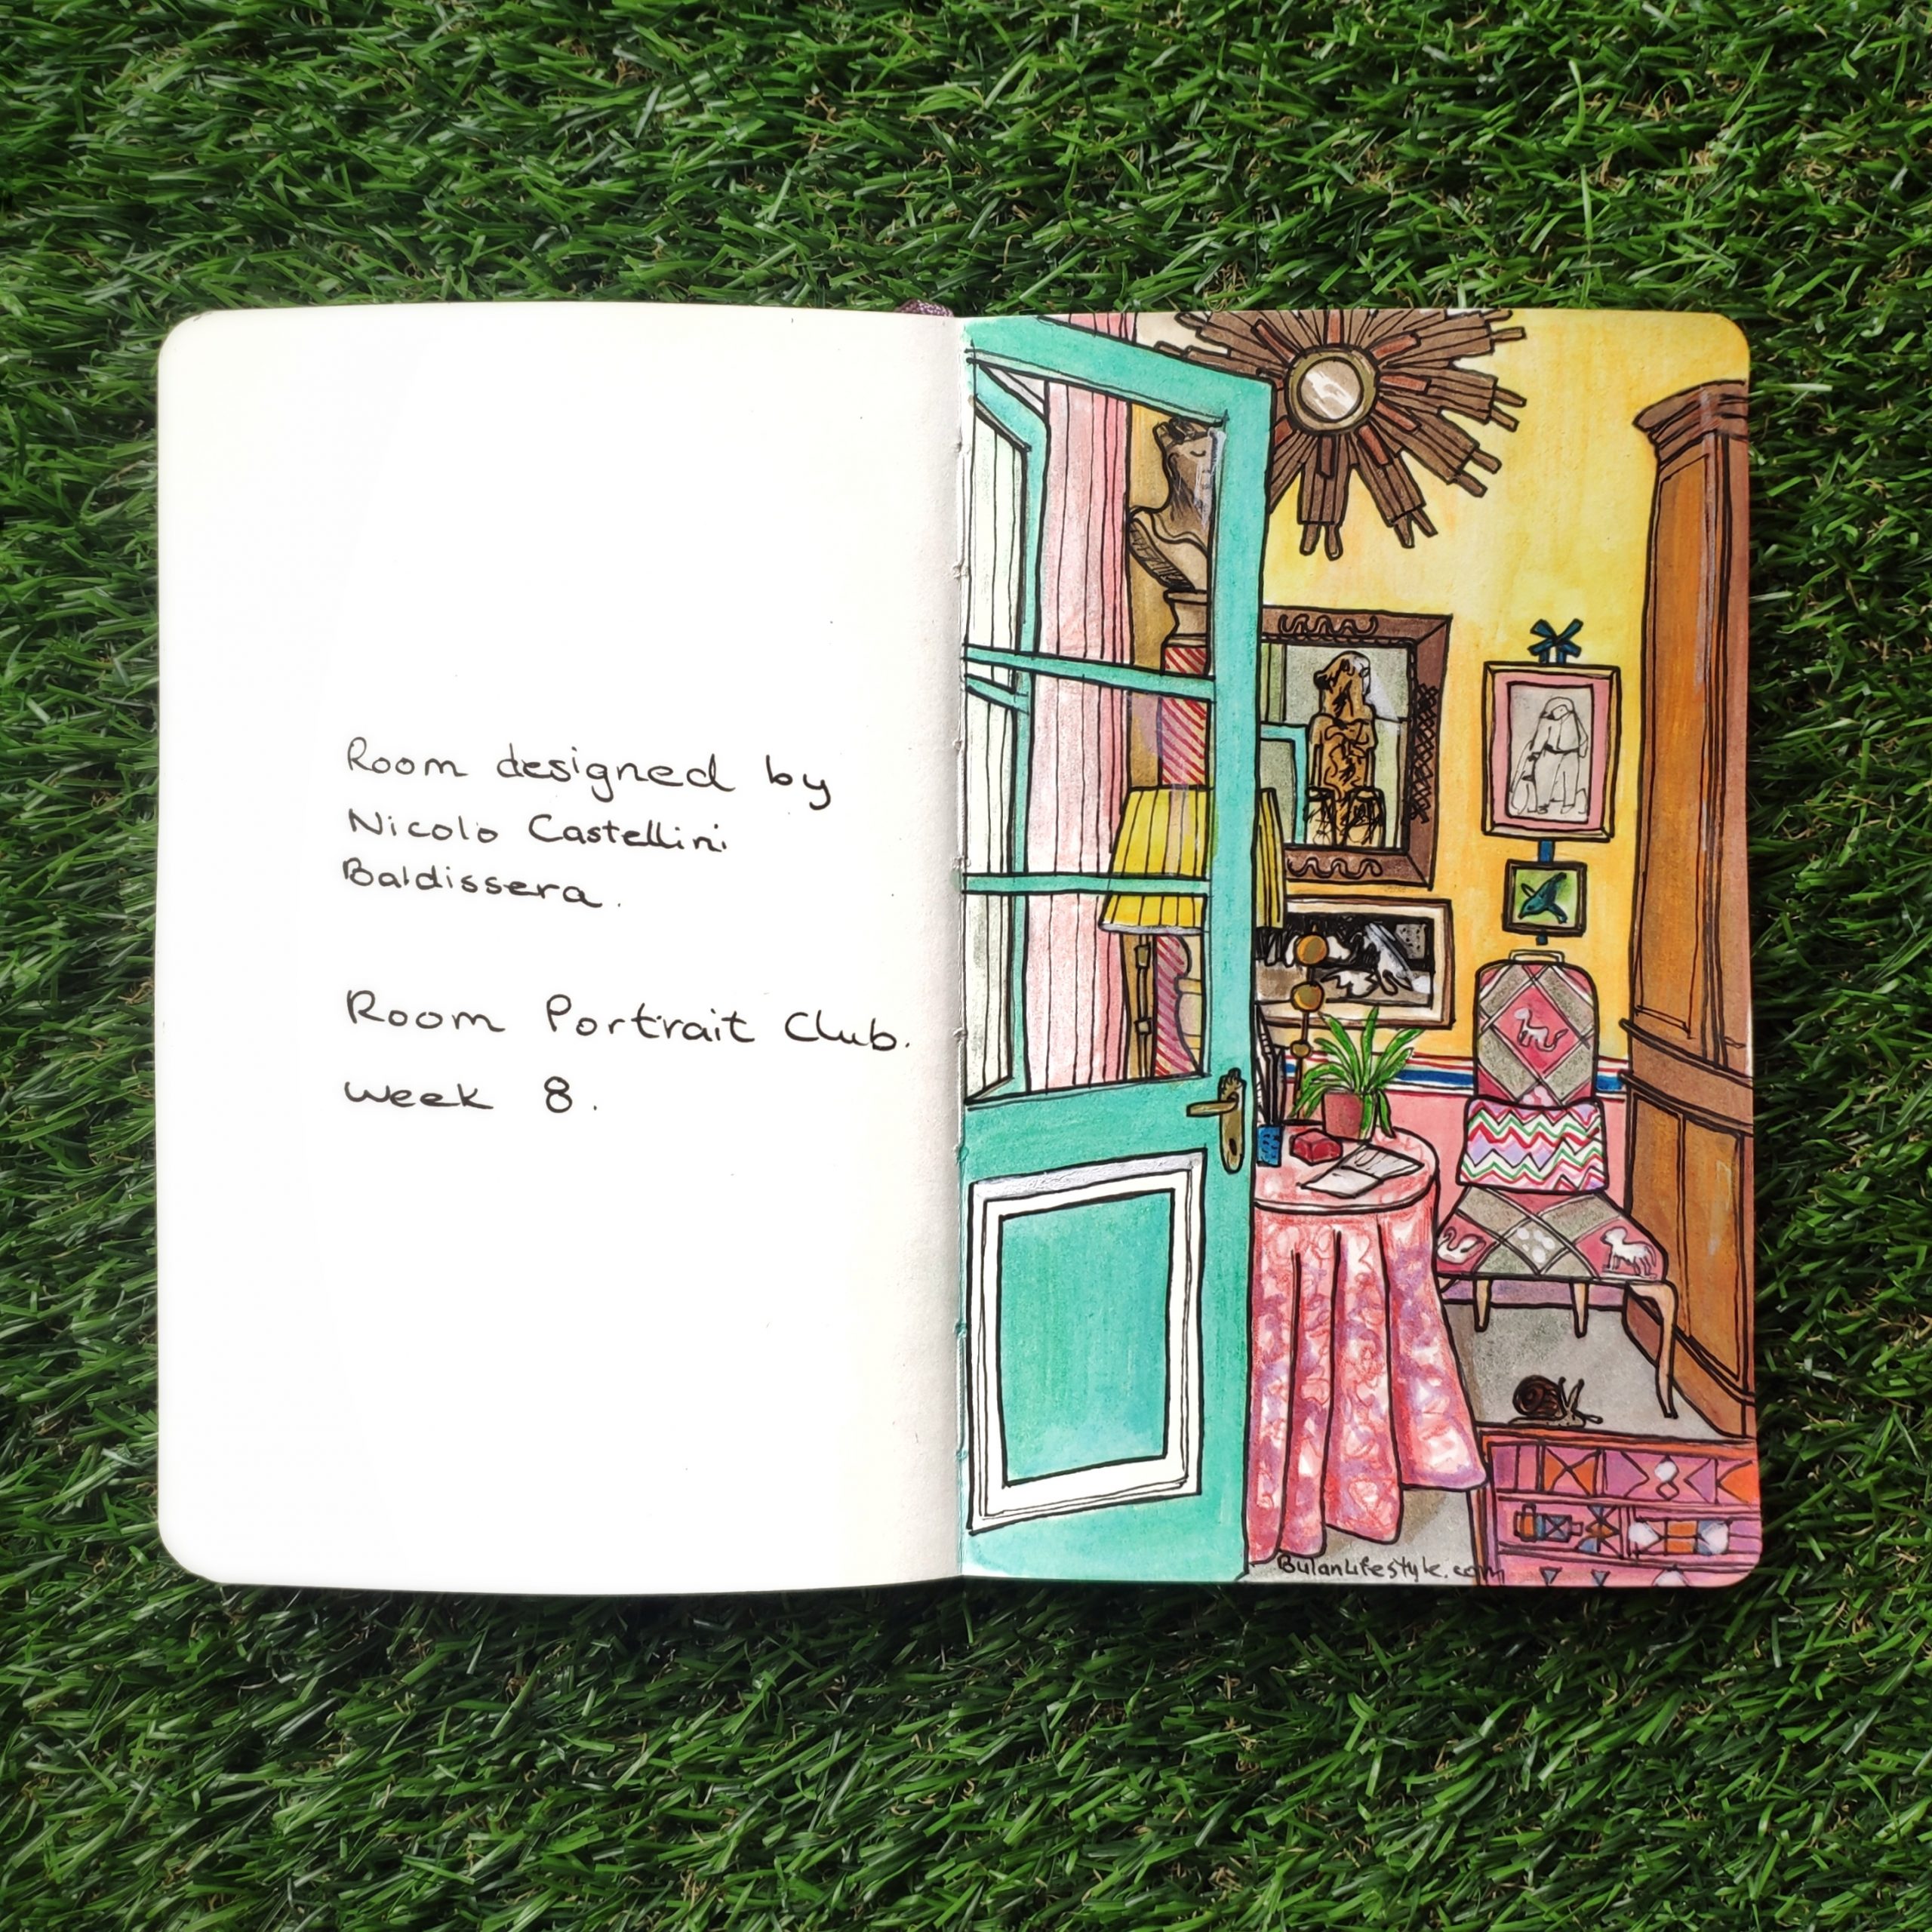 Room designed by
Nicolo Castellini
Baldissera.
Room Portrait Club.
week 8.
BulanLifestyle.com